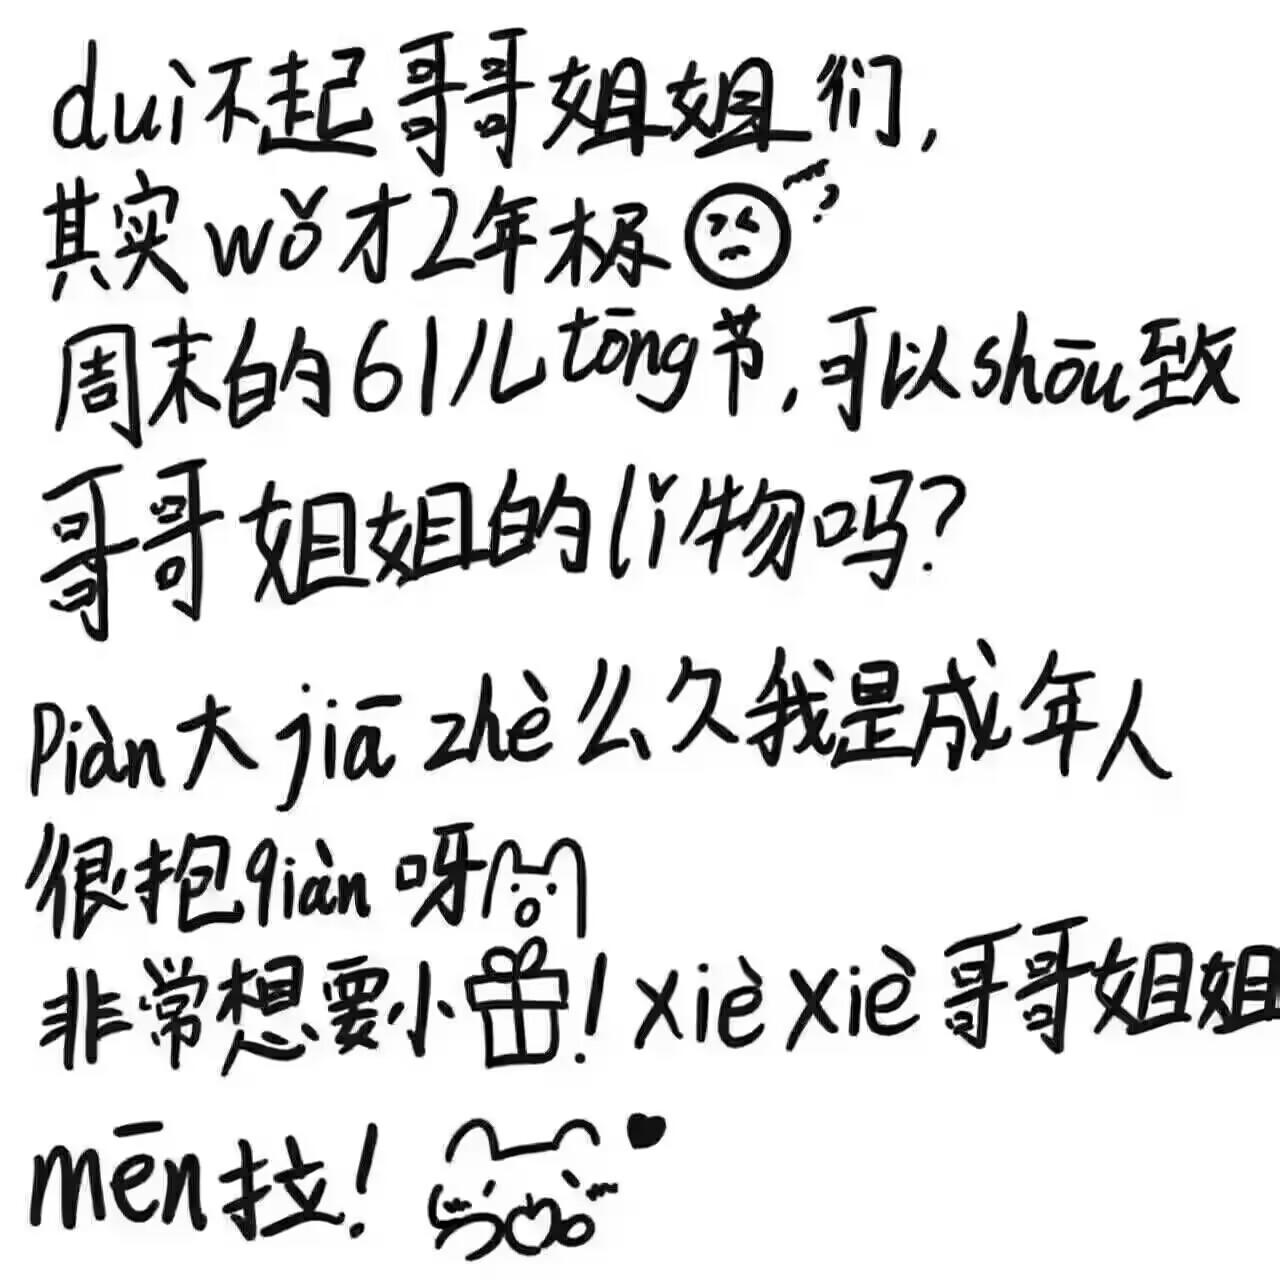 dui不起哥哥姐姐们,
其实wǒ才2年极
周末的61儿tōng节,可以shōu致
哥哥姐姐的lǐ物吗?
Piàn大jiā zhè么久我是成年人
很抱qiàn呀
非常想要小!xiè xiè哥哥姐姐
mēn拉!